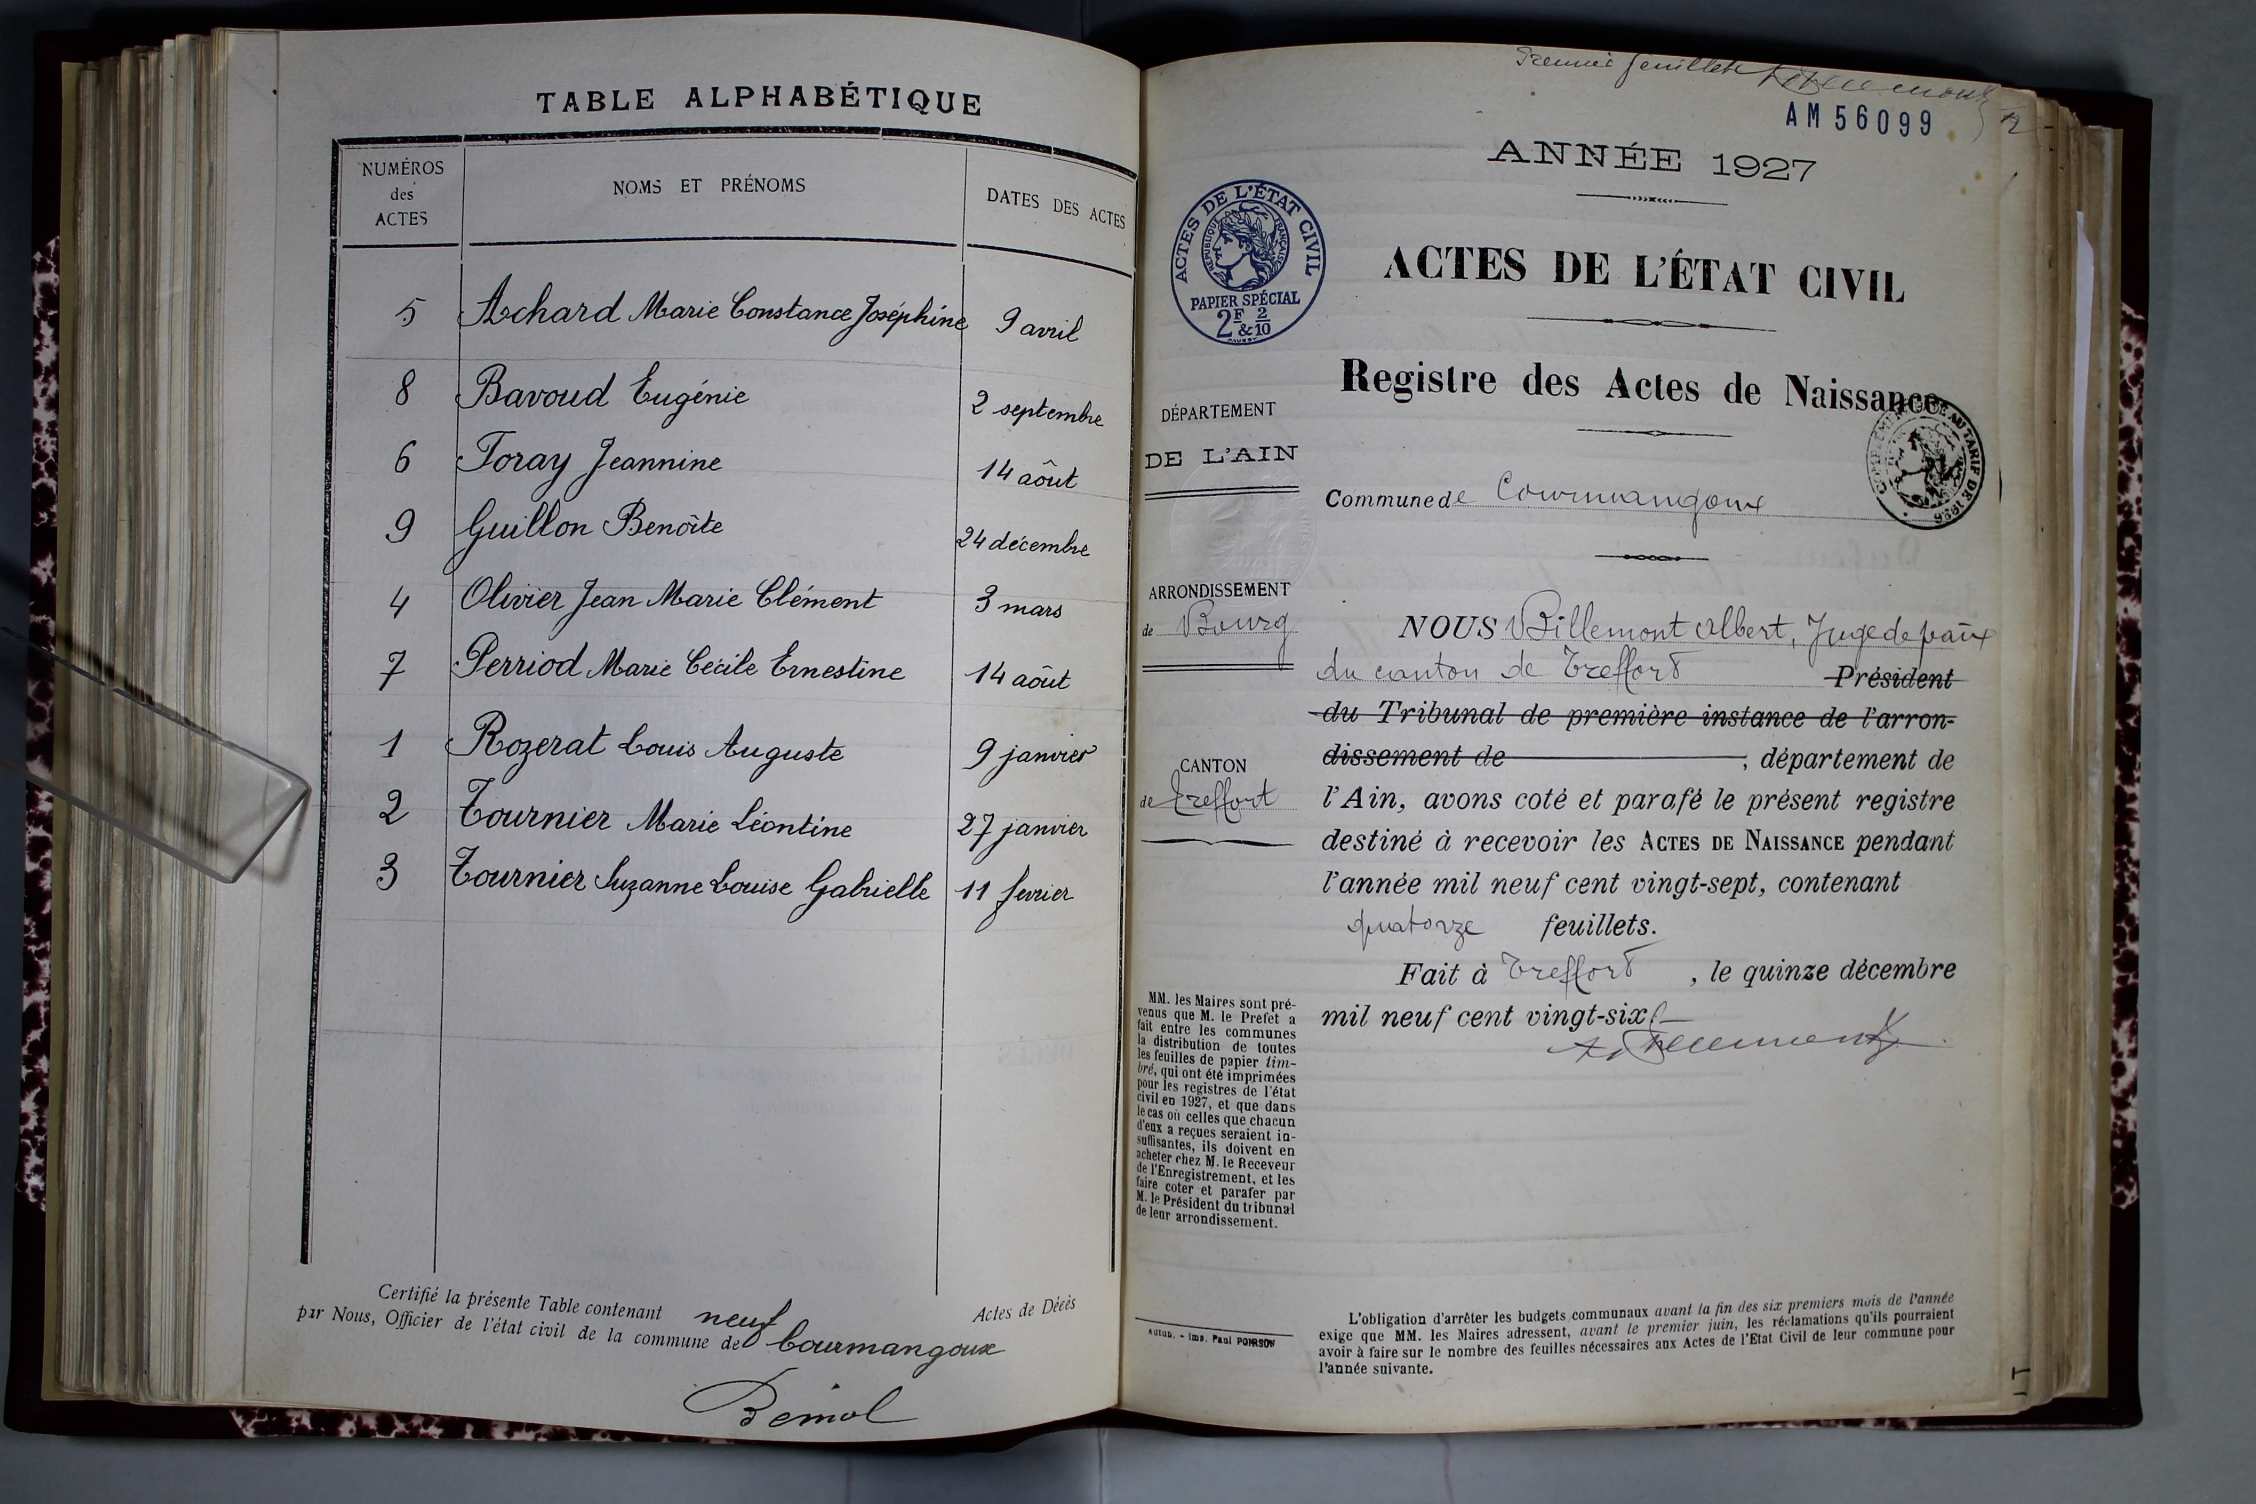 TABLE ALPHABÉTIQUE
NUMÉROS
des
ACTES
NOMS ET PRÉNOMS
DATES DES ACTES
5 Achard Marie Constance Joséphine 9 avril
8 Bavoud Eugénie 2 septembre
6 Foray Jeannine 14 août
9 Guillon Benoîte 24 décembre
4 Olivier Jean Marie Clément 3 mars
7 Perriod Marie Cécile Ernestine 14 août
1 Rozerat Louis Auguste 9 janvier
2 Tournier Marie Léontine 27 janvier
3 Tournier Suzanne Louise Gabrielle 11 fevrier
Certifié la présente Table contenant neuf Actes de Décès
par Nous, Officier de l'état civil de la commune de Courmangoux
feuillet
AM 56099
ANNÉE 1927
ACTES DE L'ÉTAT CIVIL
RÉPUBLIQUE FRANÇAISE
PAPIER SPÉCIAL
2F & 2/10
ACTES DE L'ÉTAT CIVIL
Registre des Actes de Naissance
AU TARIF DE 1926
DÉPARTEMENT
DE L'AIN
Commune de Courmangoux
ARRONDISSEMENT
de Bourg
CANTON
de Treffort
NOUS Billemont Albert, Juge de paix
du canton de Treffort Président
du Tribunal de première instance de l'arron-
dissement de , département de
l'Ain, avons coté et parafé le présent registre
destiné à recevoir les ACTES DE NAISSANCE pendant
l'année mil neuf cent vingt-sept, contenant
quatorze feuillets.
Fait à Treffort , le quinze décembre
mil neuf cent vingt-six
MM. les Maires sont pré-
venus que M. le Prefet a
fait entre les communes
la distribution de toutes
les feuilles de papier tim-
bré, qui ont été imprimées
pour les registres de l'état
civil en 1927, et que dans
le cas où celles que chacun
d'eux a reçues seraient in-
suffisantes, ils doivent en
acheter chez M. le Receveur
de l'Enregistrement, et les
faire coter et parafer par
M. le Président du tribunal
de leur arrondissement.
Autun. - Imp. Paul POIRSON
L'obligation d'arrêter les budgets communaux avant la fin des six premiers mois de l'année
exige que MM. les Maires adressent, avant le premier juin, les réclamations qu'ils pourraient
avoir à faire sur le nombre des feuilles nécessaires aux Actes de l'Etat Civil de leur commune pour
l'année suivante.